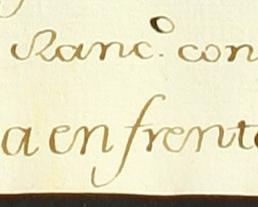 Ranc.º con
a en frente